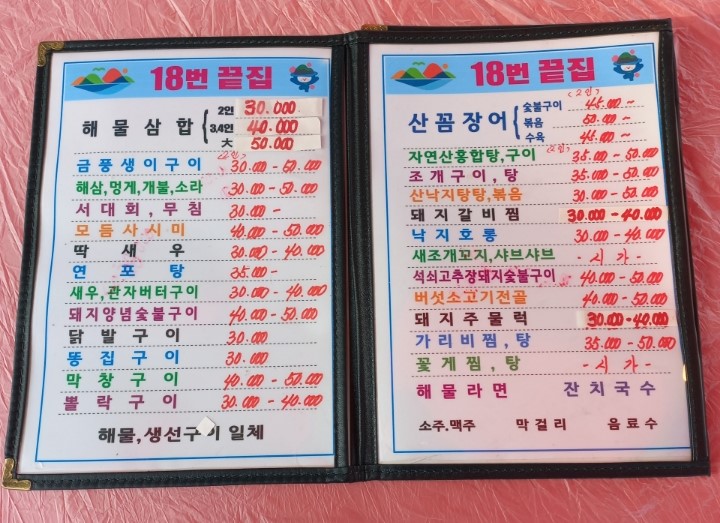 18번 끝집
해물삼합
2인 30.000
3,4인 40.000
大 50.000
금풍생이구이 (2인) 30.000 - 50.000
해삼,멍게,개불,소라 30.000 - 50.000
서대회, 무침 30.000 -
모듬사시미 40.000 - 50.000
딱새우 30.000 - 40.000
연포탕 35.000 -
새우,관자버터구이 30.000 - 40.000
돼지양념숯불구이 40.000 - 50.000
닭발구이 30.000
똥집구이 30.000
막창구이 40.000 - 50.000
뽈락구이 30.000 - 40.000
해물,생선구이 일체
18번 끝집
산꼼장어
(2인)
숯불구이 45.000 ~
볶음 50.000 ~
수육 45.000 ~
자연산홍합탕,구이 (2인) 35.000 - 50.000
조개구이, 탕 35.000 - 50.000
산낙지탕탕,볶음 30.000 - 50.000
돼지갈비찜 30.000 - 40.000
낙지호롱 30.000 - 40.000
새조개꼬지,샤브샤브 - 시가 -
석쇠고추장돼지숯불구이 40.000 - 50.000
버섯소고기전골 40.000 - 50.000
돼지주물럭 30.000 - 40.000
가리비찜, 탕 35.000 - 50.000
꽃게찜, 탕 - 시가 -
해물라면 잔치국수
소주.맥주 막걸리 음료수